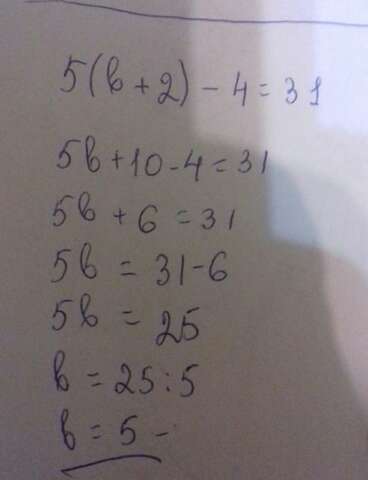 5(b+2)-4=31
5b+10-4=31
5b+6=31
5b=31-6
5b=25
b=25:5
b=5-